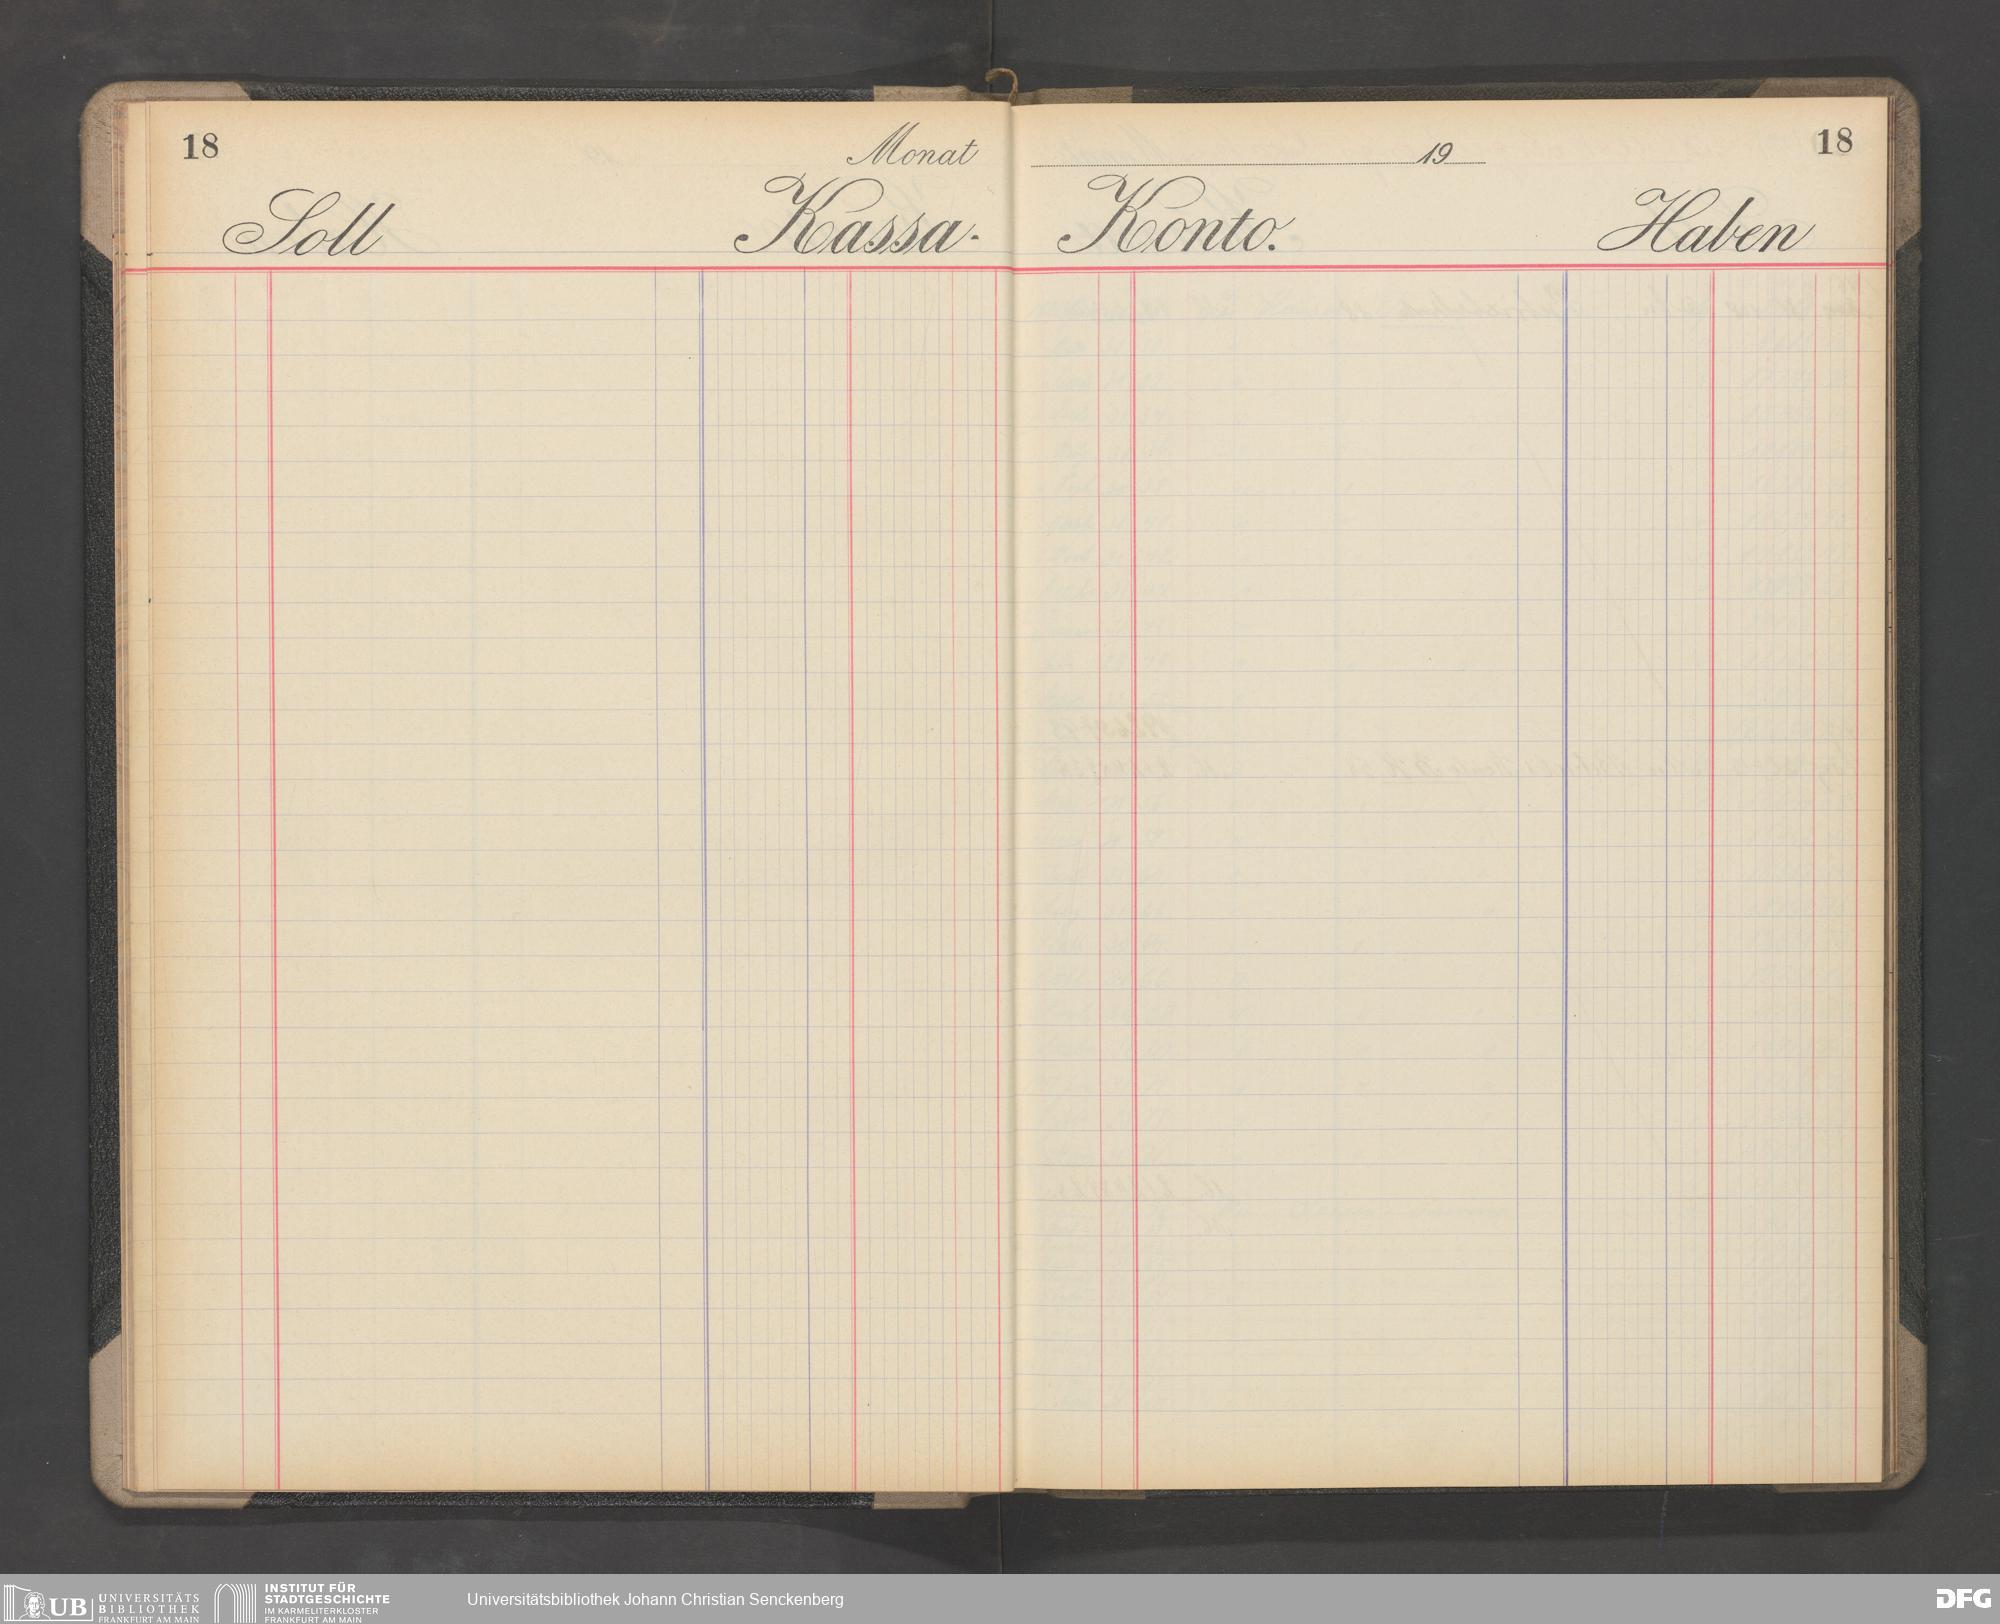 18
Monat 19
18
Soll Kassa- Konto. Haben
UB UNIVERSITÄTS
BIBLIOTHEK
FRANKFURT AM MAIN
INSTITUT FÜR
STADTGESCHICHTE
IM KARMELITERKLOSTER
FRANKFURT AM MAIN
Universitätsbibliothek Johann Christian Senckenberg
DFG